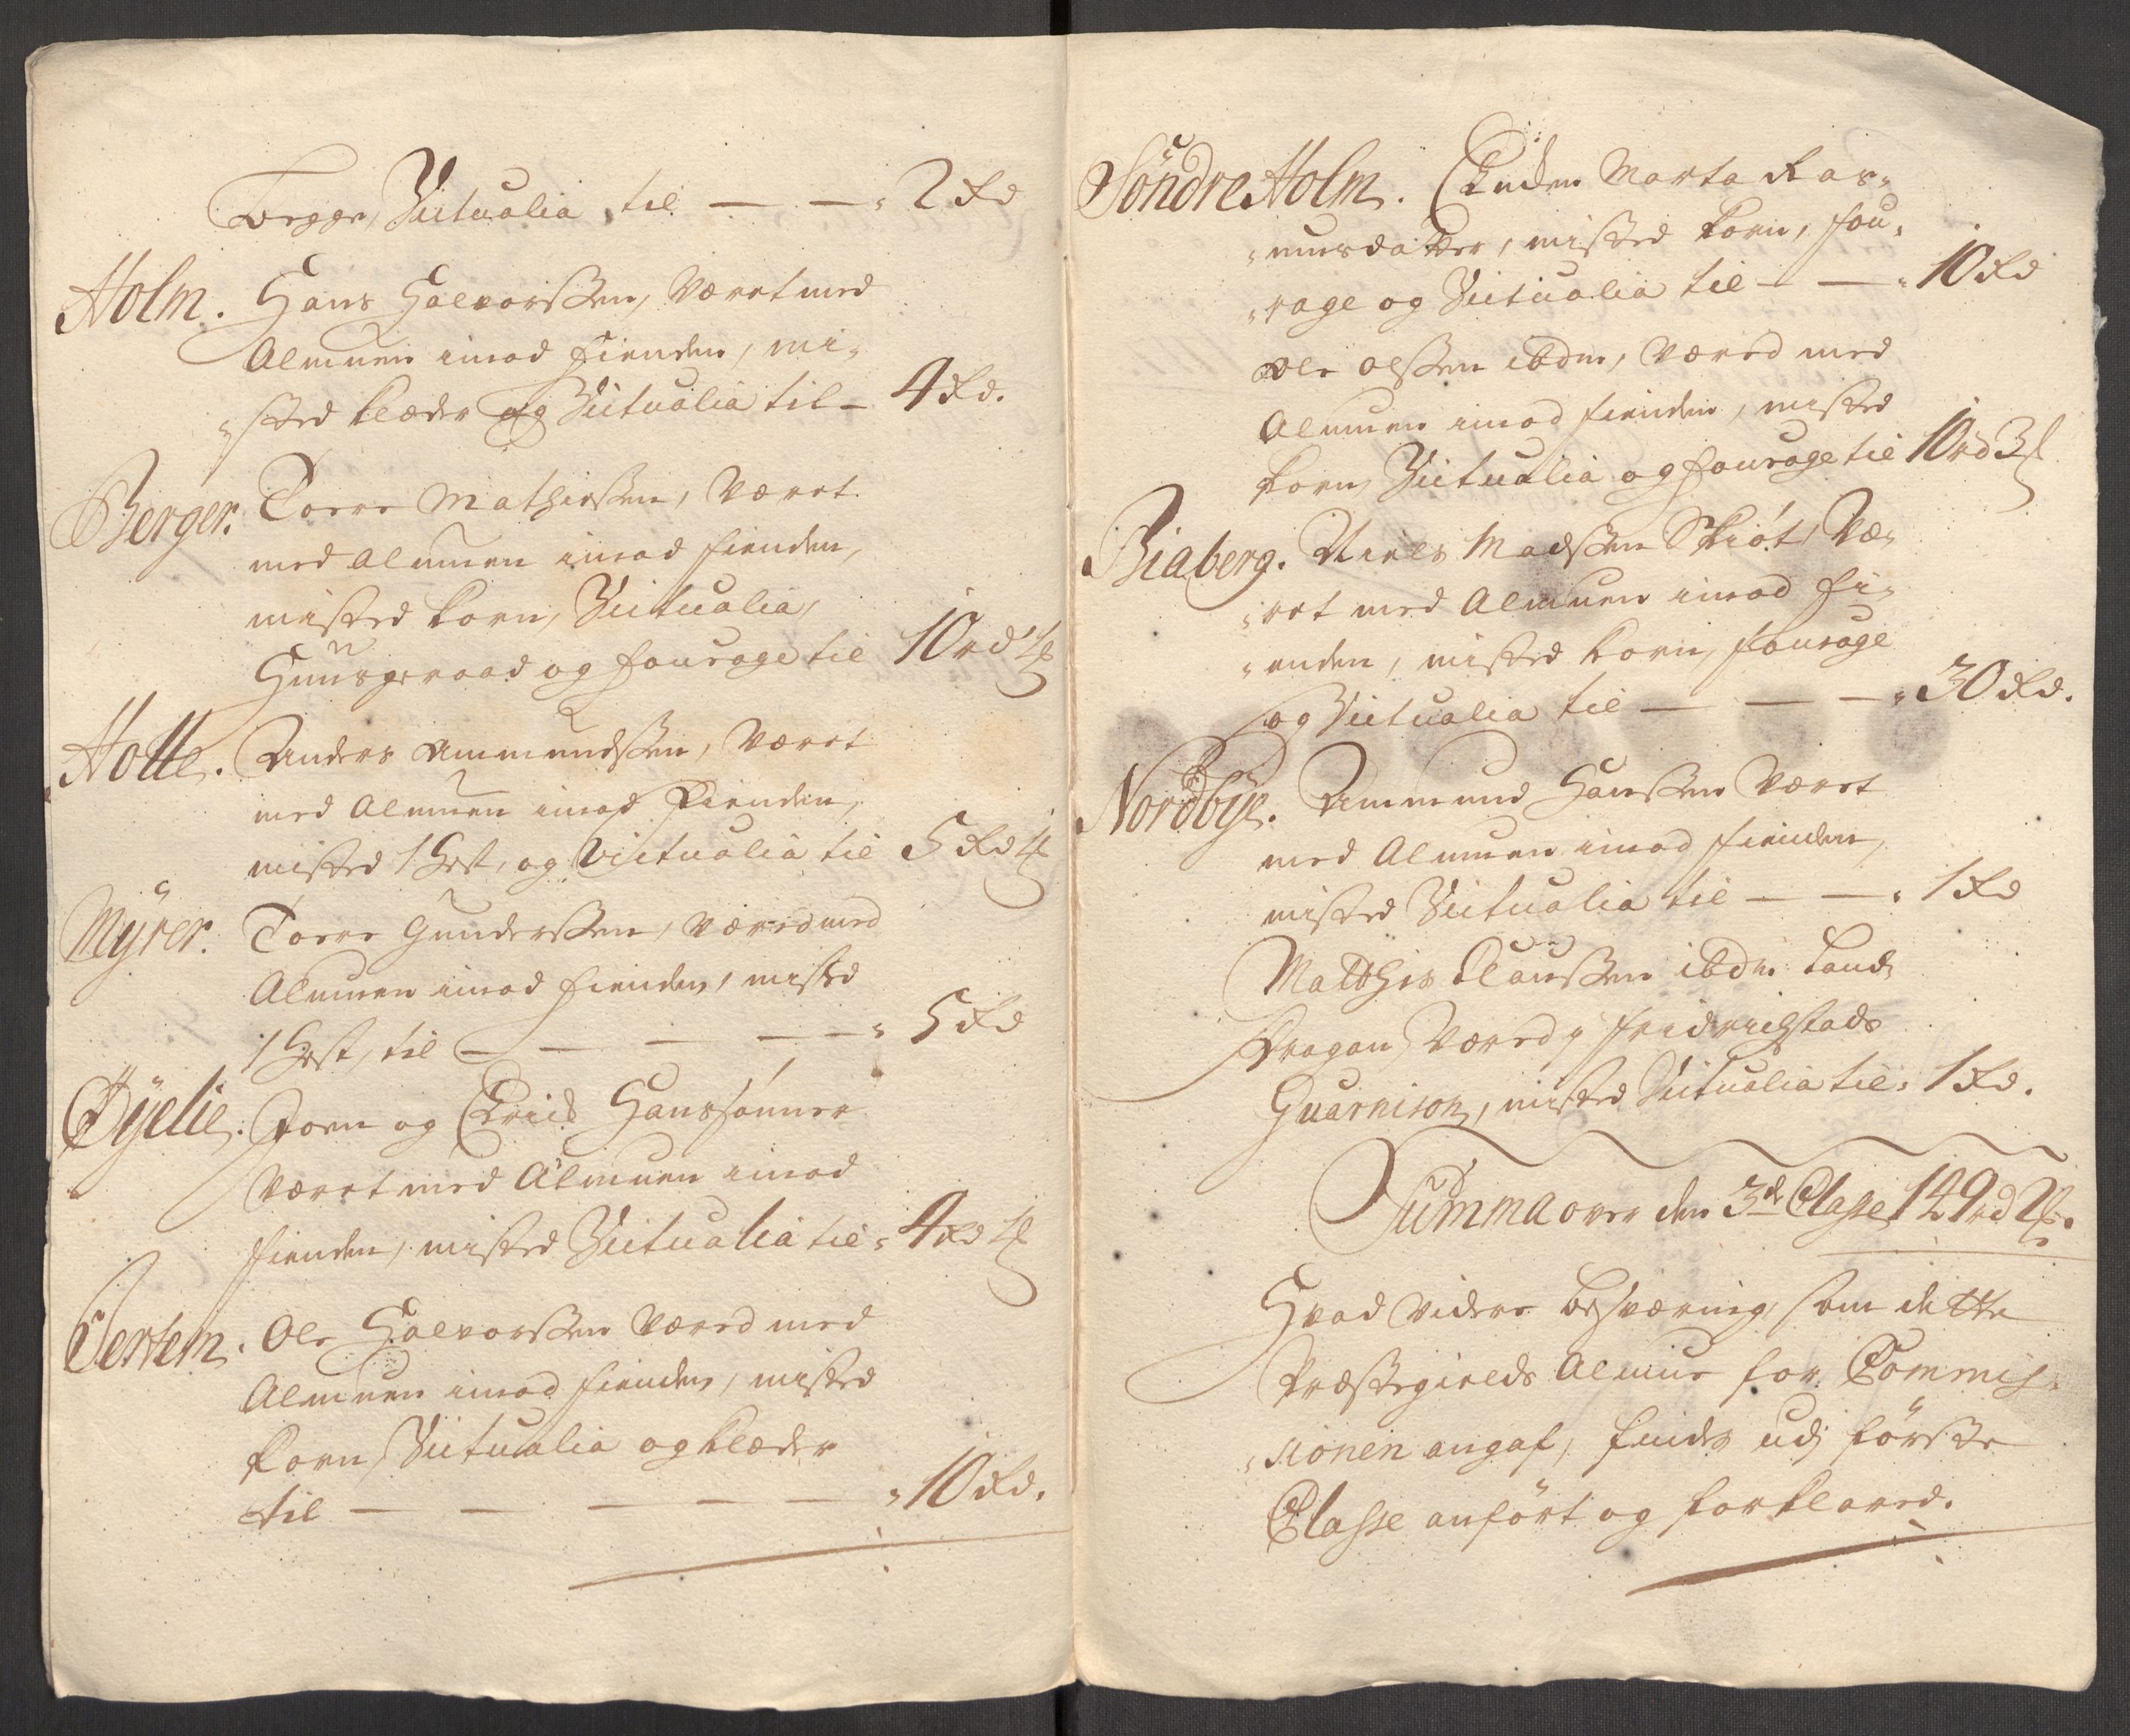 Begge, Victualia til — — 2 Rd
Holm. Hans Halvorssen, Været med
Almuen imod Fienden, mi-
sted Klæder og Victualia til — 4 Rd.
Berger. Torre Mathiessen, Været
med Almuen imod Fienden,
misted Korn, Victualia,
Huusgeraad og Fourage til 10 rd
Holte. Anders Ammundssen, Været
med Almuen imod Fienden,
misted 1 Hest, og Victualia til 5 Rd
Myrer. Torre Gunderssen, Væred med
Almuen imod Fienden, misted
1 Hest, til — — — — — 5 Rd
Byelie. Joen og Erich Hanssønner
Været med Almuen imod
Fienden, misted Victualia til 4 Rd
Tertem. Ole Halvorssen Væred med
Almuen imod Fienden, misted
Korn, Victualia og Klæder
til — — — — — 10 Rd.
Söndre Holm. Enken Marta Ras-
musdatter, misted Korn, Fou-
rage og Victualia til — — 10 Rd
Ole Olssen ibdm, Væred med
Almuen imod Fienden, misted
Korn, Victualia og Fourage til 10 rd 3
Biaberg. Niels Madssen Skiøt, Væ-
ret med Almuen imod Fi-
enden, misted Korn, Fourage
og Victualia til — — — 30 Rd.
Nordbye. Ammund Hanssen Været
med Almuen imod Fienden,
misted Victualia til — — 1 Rd
Matthis Claussen ibdm Land
Dragon, Væred i Fridrichstads
Guarnison, misted Victualia til 1 Rd.
Summa over den 3de Classe 149 rd 2
Hvad videre besværing som dette
Præstegields Almue for Commis-
sionen angaf, findes udj første
Classe anført og forklared.